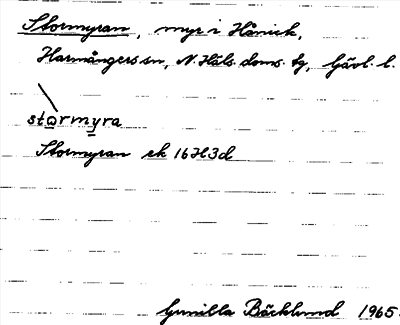 Stormyran, myr i Hånick,
Harmångers sn, N. Häls. doms. tg, Gävl. l.
stormyra
Stormyran ek 16H3d
Gunilla Bäcklund 1965.